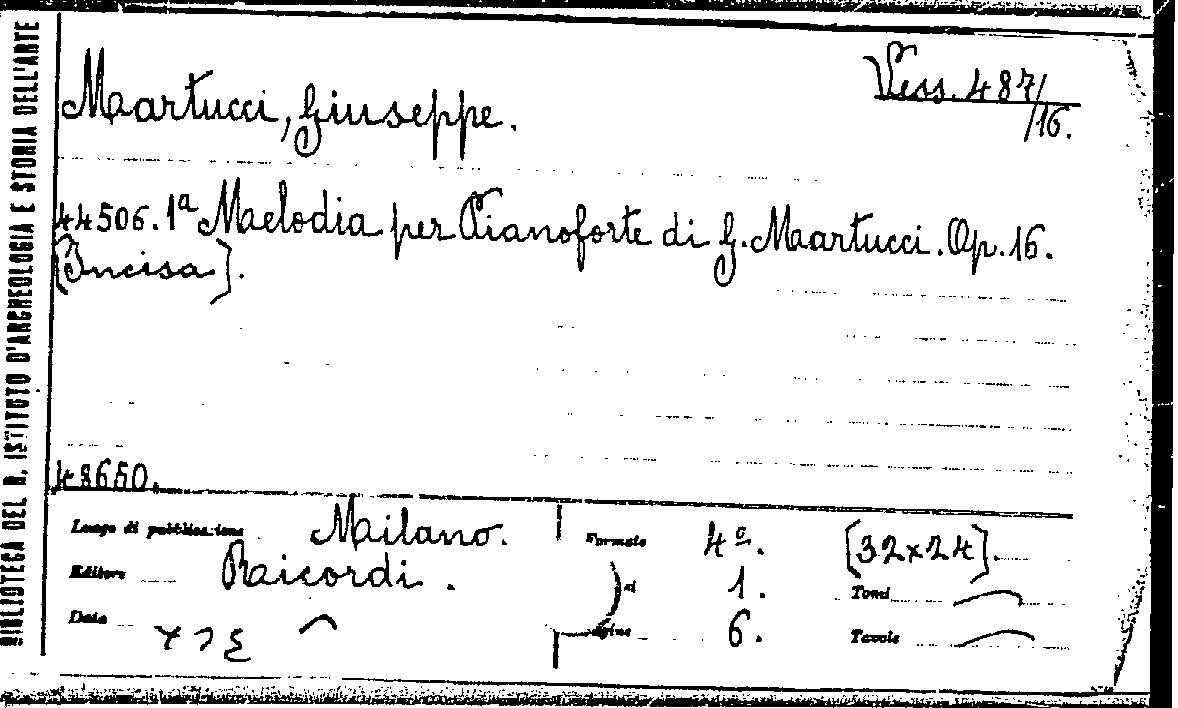 BIBLIOTECA DEL R. ISTITUTO D'ARCHEOLOGIA E STORIA DELL'ARTE
Martucci, Giuseppe.
Vess. 487/
/16.
44506. 1ª Melodia per Pianoforte di G. Martucci. Op. 16.
[Incisa].
48650.
Luogo di pubblicazione Milano.
Formato 4º. [32x24].
Editore Ricordi.
1. Tomi
Data
6. Tavole